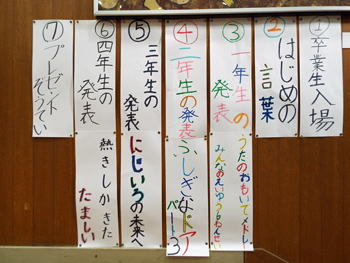 ①卒業生入場
②はじめの
言葉
③一年生の
発表
うたのおもいでメドレー
みんなのえいゆう6ねんせい
④二年生の発表
ふしぎなドア
パート3
⑤三年生の
発表
にじいろの未来へ
⑥四年生の
発表
熱きしかきた
たましい
⑦プレゼント
ぞうてい